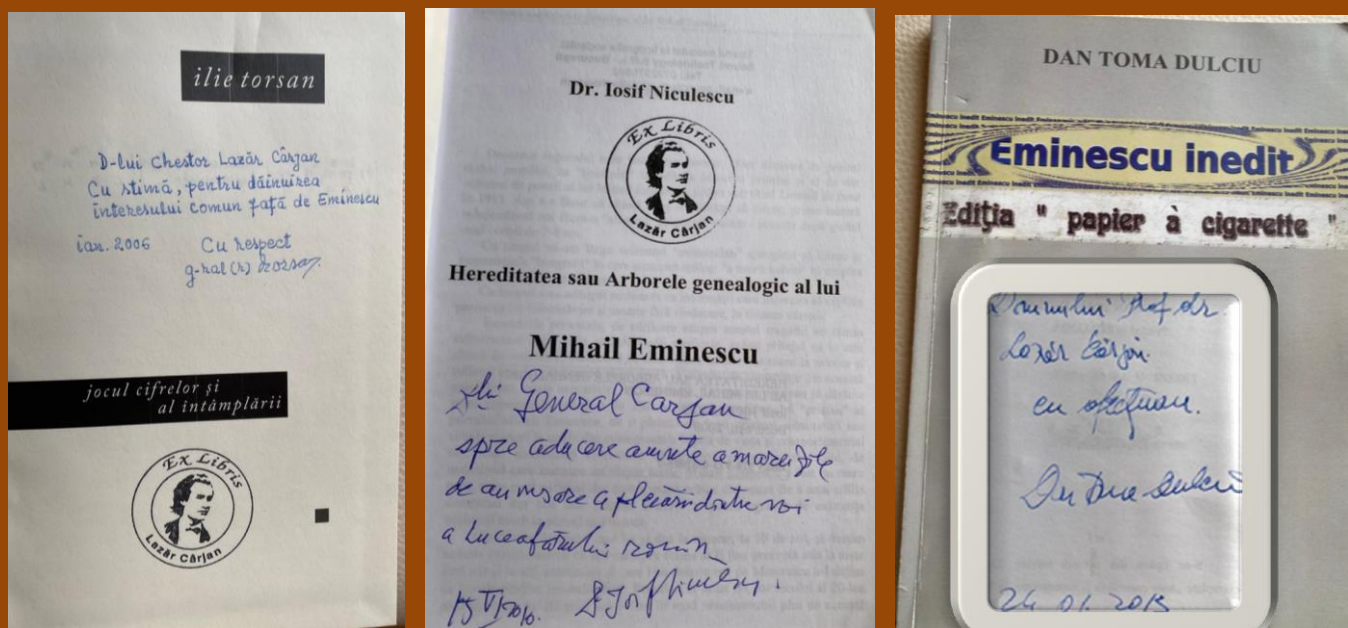 ilie torsan
D-lui Chestor Lazăr Cârjan
Cu stimă, pentru dăinuirea
interesului comun față de Eminescu
ian. 2006 Cu respect
g-ral (r)
jocul cifrelor și
al intâmplării
Ex Libris
Lazăr Cârjan
Dr. Iosif Niculescu
Ex Libris
Lazăr Cârjan
Hereditatea sau Arborele genealogic al lui
Mihail Eminescu
General Carjan
spre aducere aminte a marei zile
de a
a luceafarului român
15 VI 2010.
DAN TOMA DULCIU
Eminescu inedit
Ediția " papier à cigarette "
Domnului Prof. dr.
Lazăr Cârjan.
cu afecțiune.
Dan Toma Dulciu